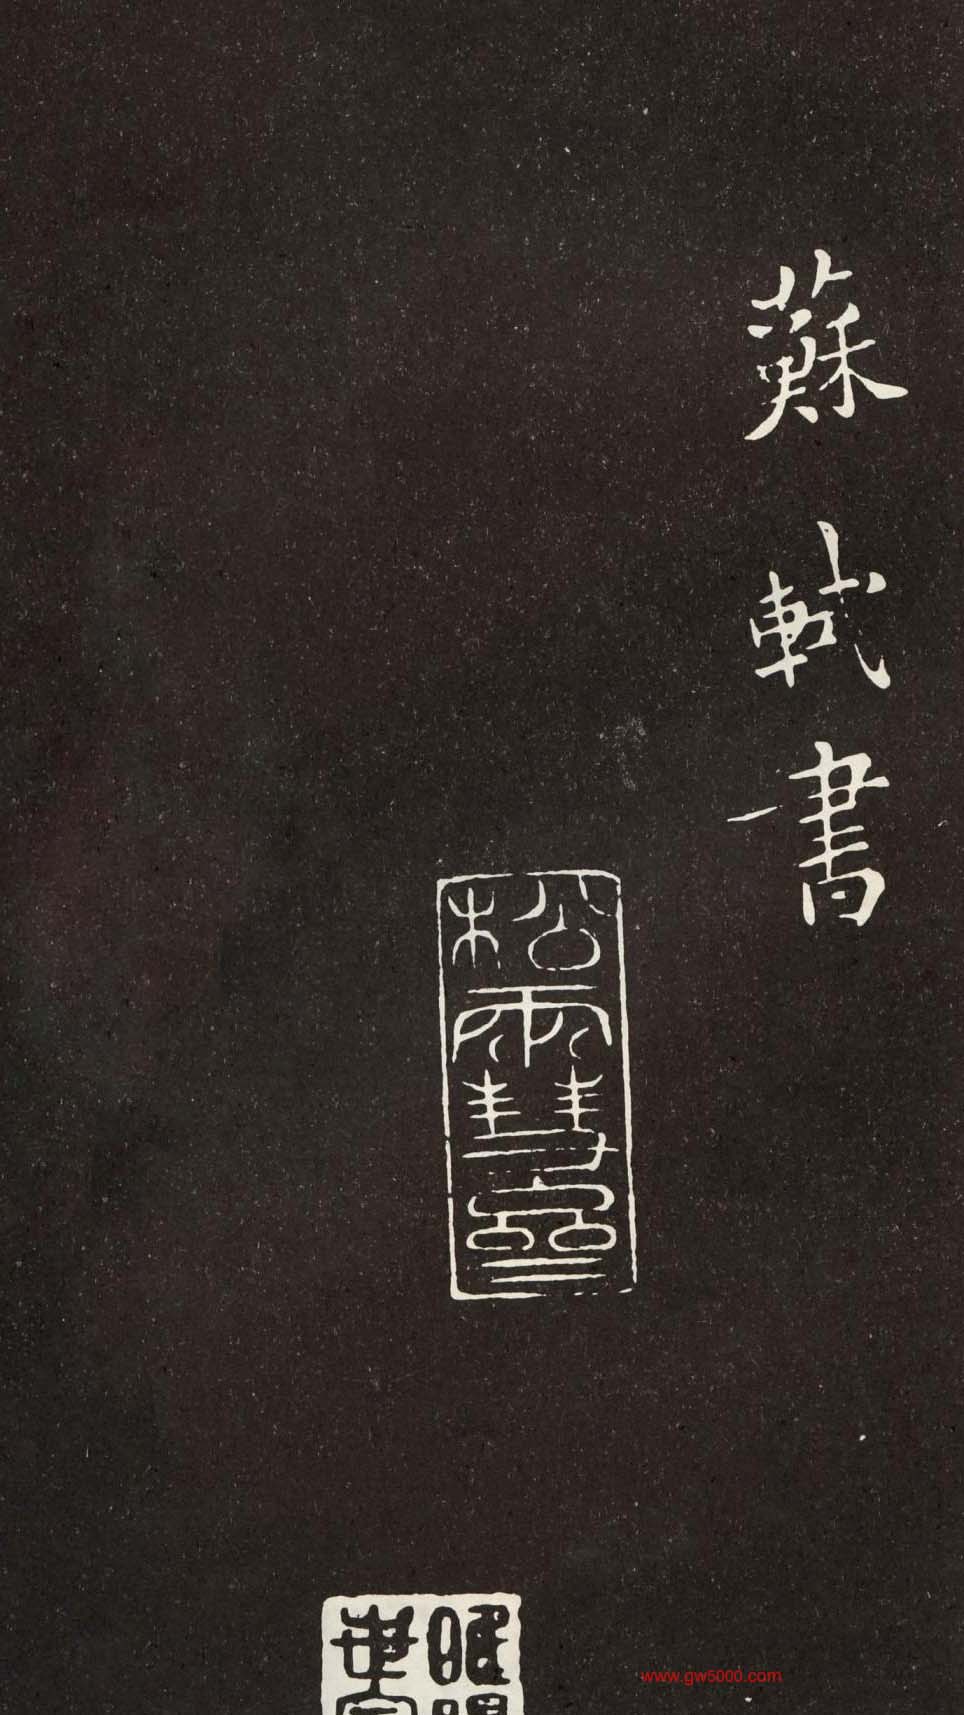 蘇軾書
松雪齋
www.gw5000.com